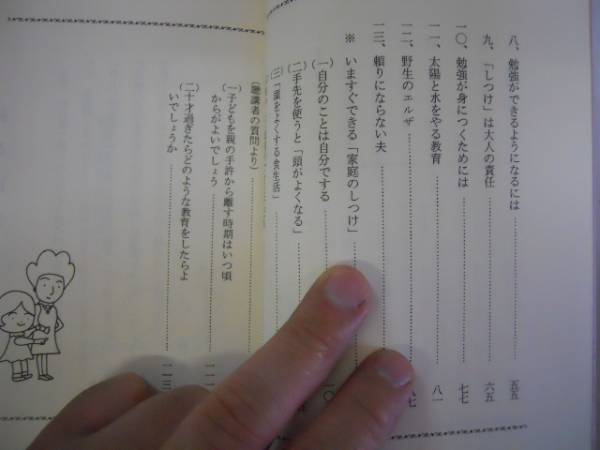 八、勉強ができるようになるには 五五
九、「しつけ」は大人の責任 六五
一〇、勉強が身につくためには 七七
一一、太陽と水をやる教育 八一
一二、野生のエルザ 八七
一三、頼りにならない夫
※ いますぐできる「家庭のしつけ」
(一)自分のことは自分でする 一〇
(二)手先を使うと「頭がよくなる」
(三)「頭をよくする食生活」
(聴講者の質問より)
(一)子どもを親の手許から離す時期はいつ頃
からがよいでしょう 一一
(二)十才過ぎたらどのような教育をしたらよ
いでしょうか 一一三